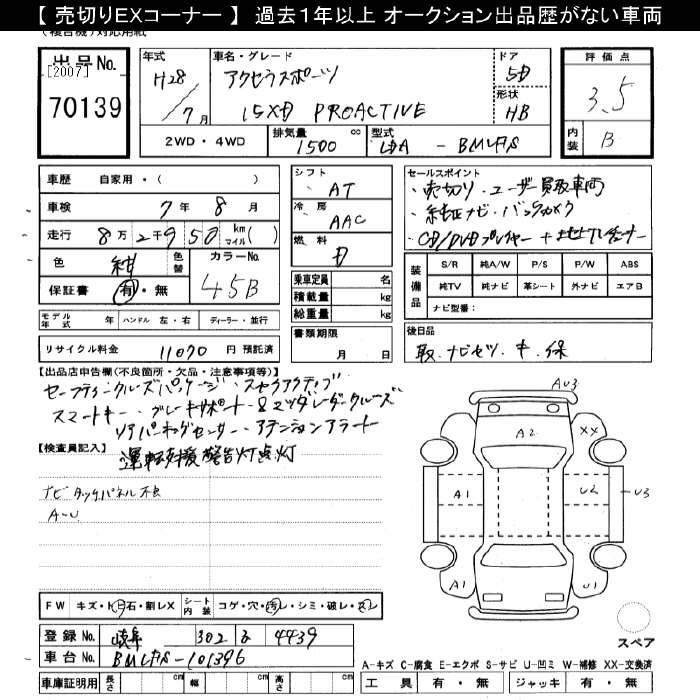 【 売切りEXコーナー 】 過去1年以上 オークション出品歴がない車両
出品No.
[2007]
70139
年式
H28/7月
車名・グレード
アクセラスポーツ
15XD PROACTIVE
ドア
5D
形状
HB
評価点
3.5
内装
B
2WD・4WD
排気量
1500 cc
型式
LDA - BMLFS
車歴 自家用・( )
車検 7年8月
走行 8万2千950 km マイル( )
色 紺 色替
カラーNo.
45B
保証書 有・無
モデル年式 年 ハンドル 左・右 ディーラー・並行
リサイクル料金 11070 円 預託済
シフト
AT
冷房
AAC
燃料
D
乗車定員 名
積載量 kg
総重量 kg
書類期限
月 日
セールスポイント
・売切り・ユーザー買取車両
・純正ナビ・バックカメラ
・CD/DVDプレイヤー
装備品
S/R 純A/W P/S P/W ABS
純TV 純ナビ 革シート 外ナビ エアB
ナビ型番:
後日品
取、ナビセツ、キ、保
【出品店申告欄(不良箇所・欠品・注意事項等)】
セーフティクルーズパッケージ、スカイアクティブ
スマートキー、ブレーキサポート&マツダレーダークルーズ
リアパーキングセンサー、アテンションアラート
【検査員記入】
運転支援警告灯点灯
ナビタッチパネル不良
A-U
FW キズ・ 石・割レX シート内装 コゲ・穴・汚レ・シミ・破レ・
登録No. 岐阜 302 4439
車台No. BMLFS-101396
車庫証明用 長さ cm 幅 cm 高さ cm
AU3
A2
XX
A1
U2
U3
A1
U1
スペア
A-キズ C-腐食 E-エクボ S-サビ U-凹ミ W-補修 XX-交換済
工具 有・無 ジャッキ 有・無